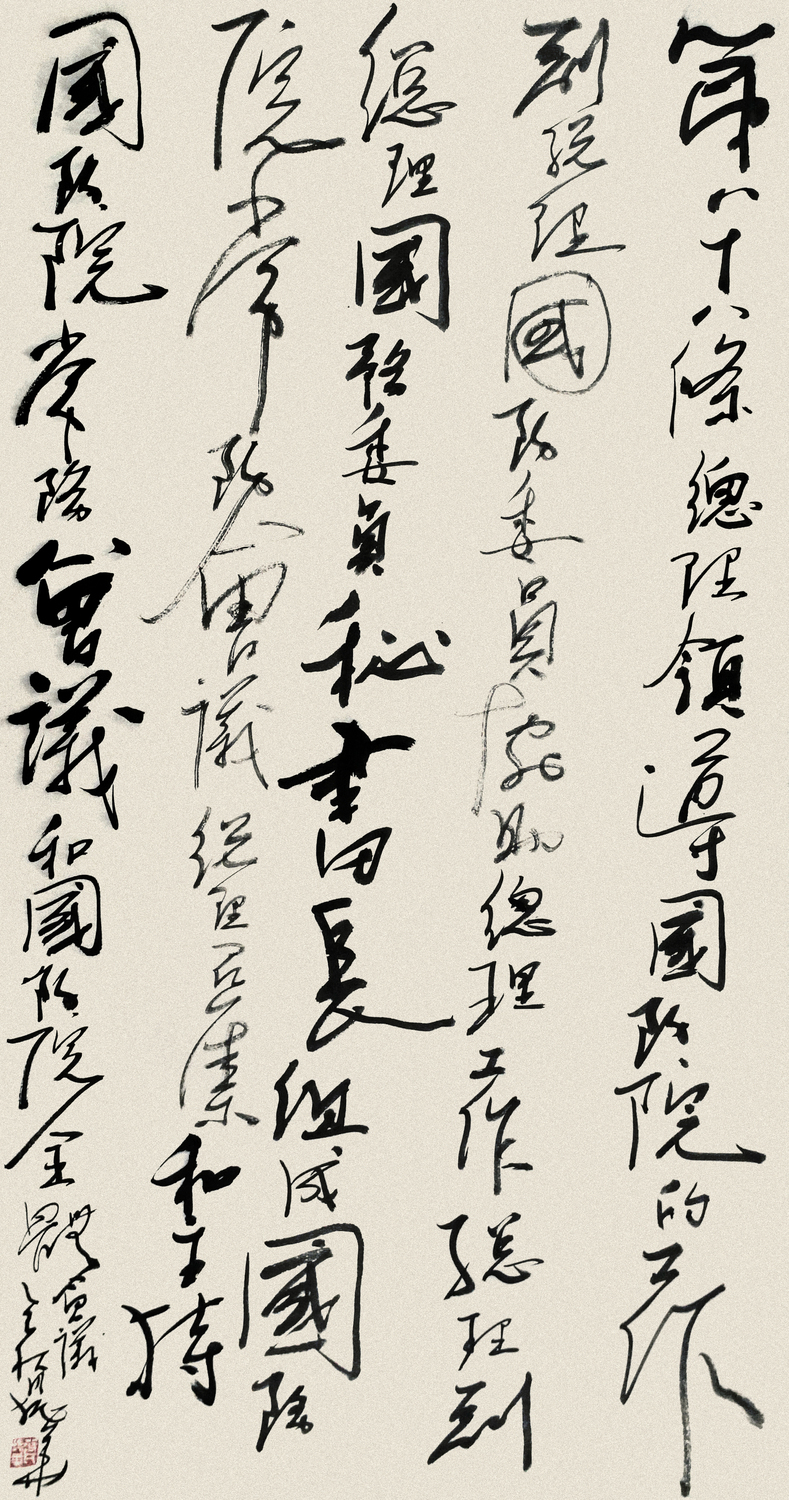 第八十八條總理領導國務院的工作
副總理國務委員協助總理工作總理副
總理國務委員秘書長組成國務
院常務會議總理召集和主持
國務院常務會議和國務院全體會議